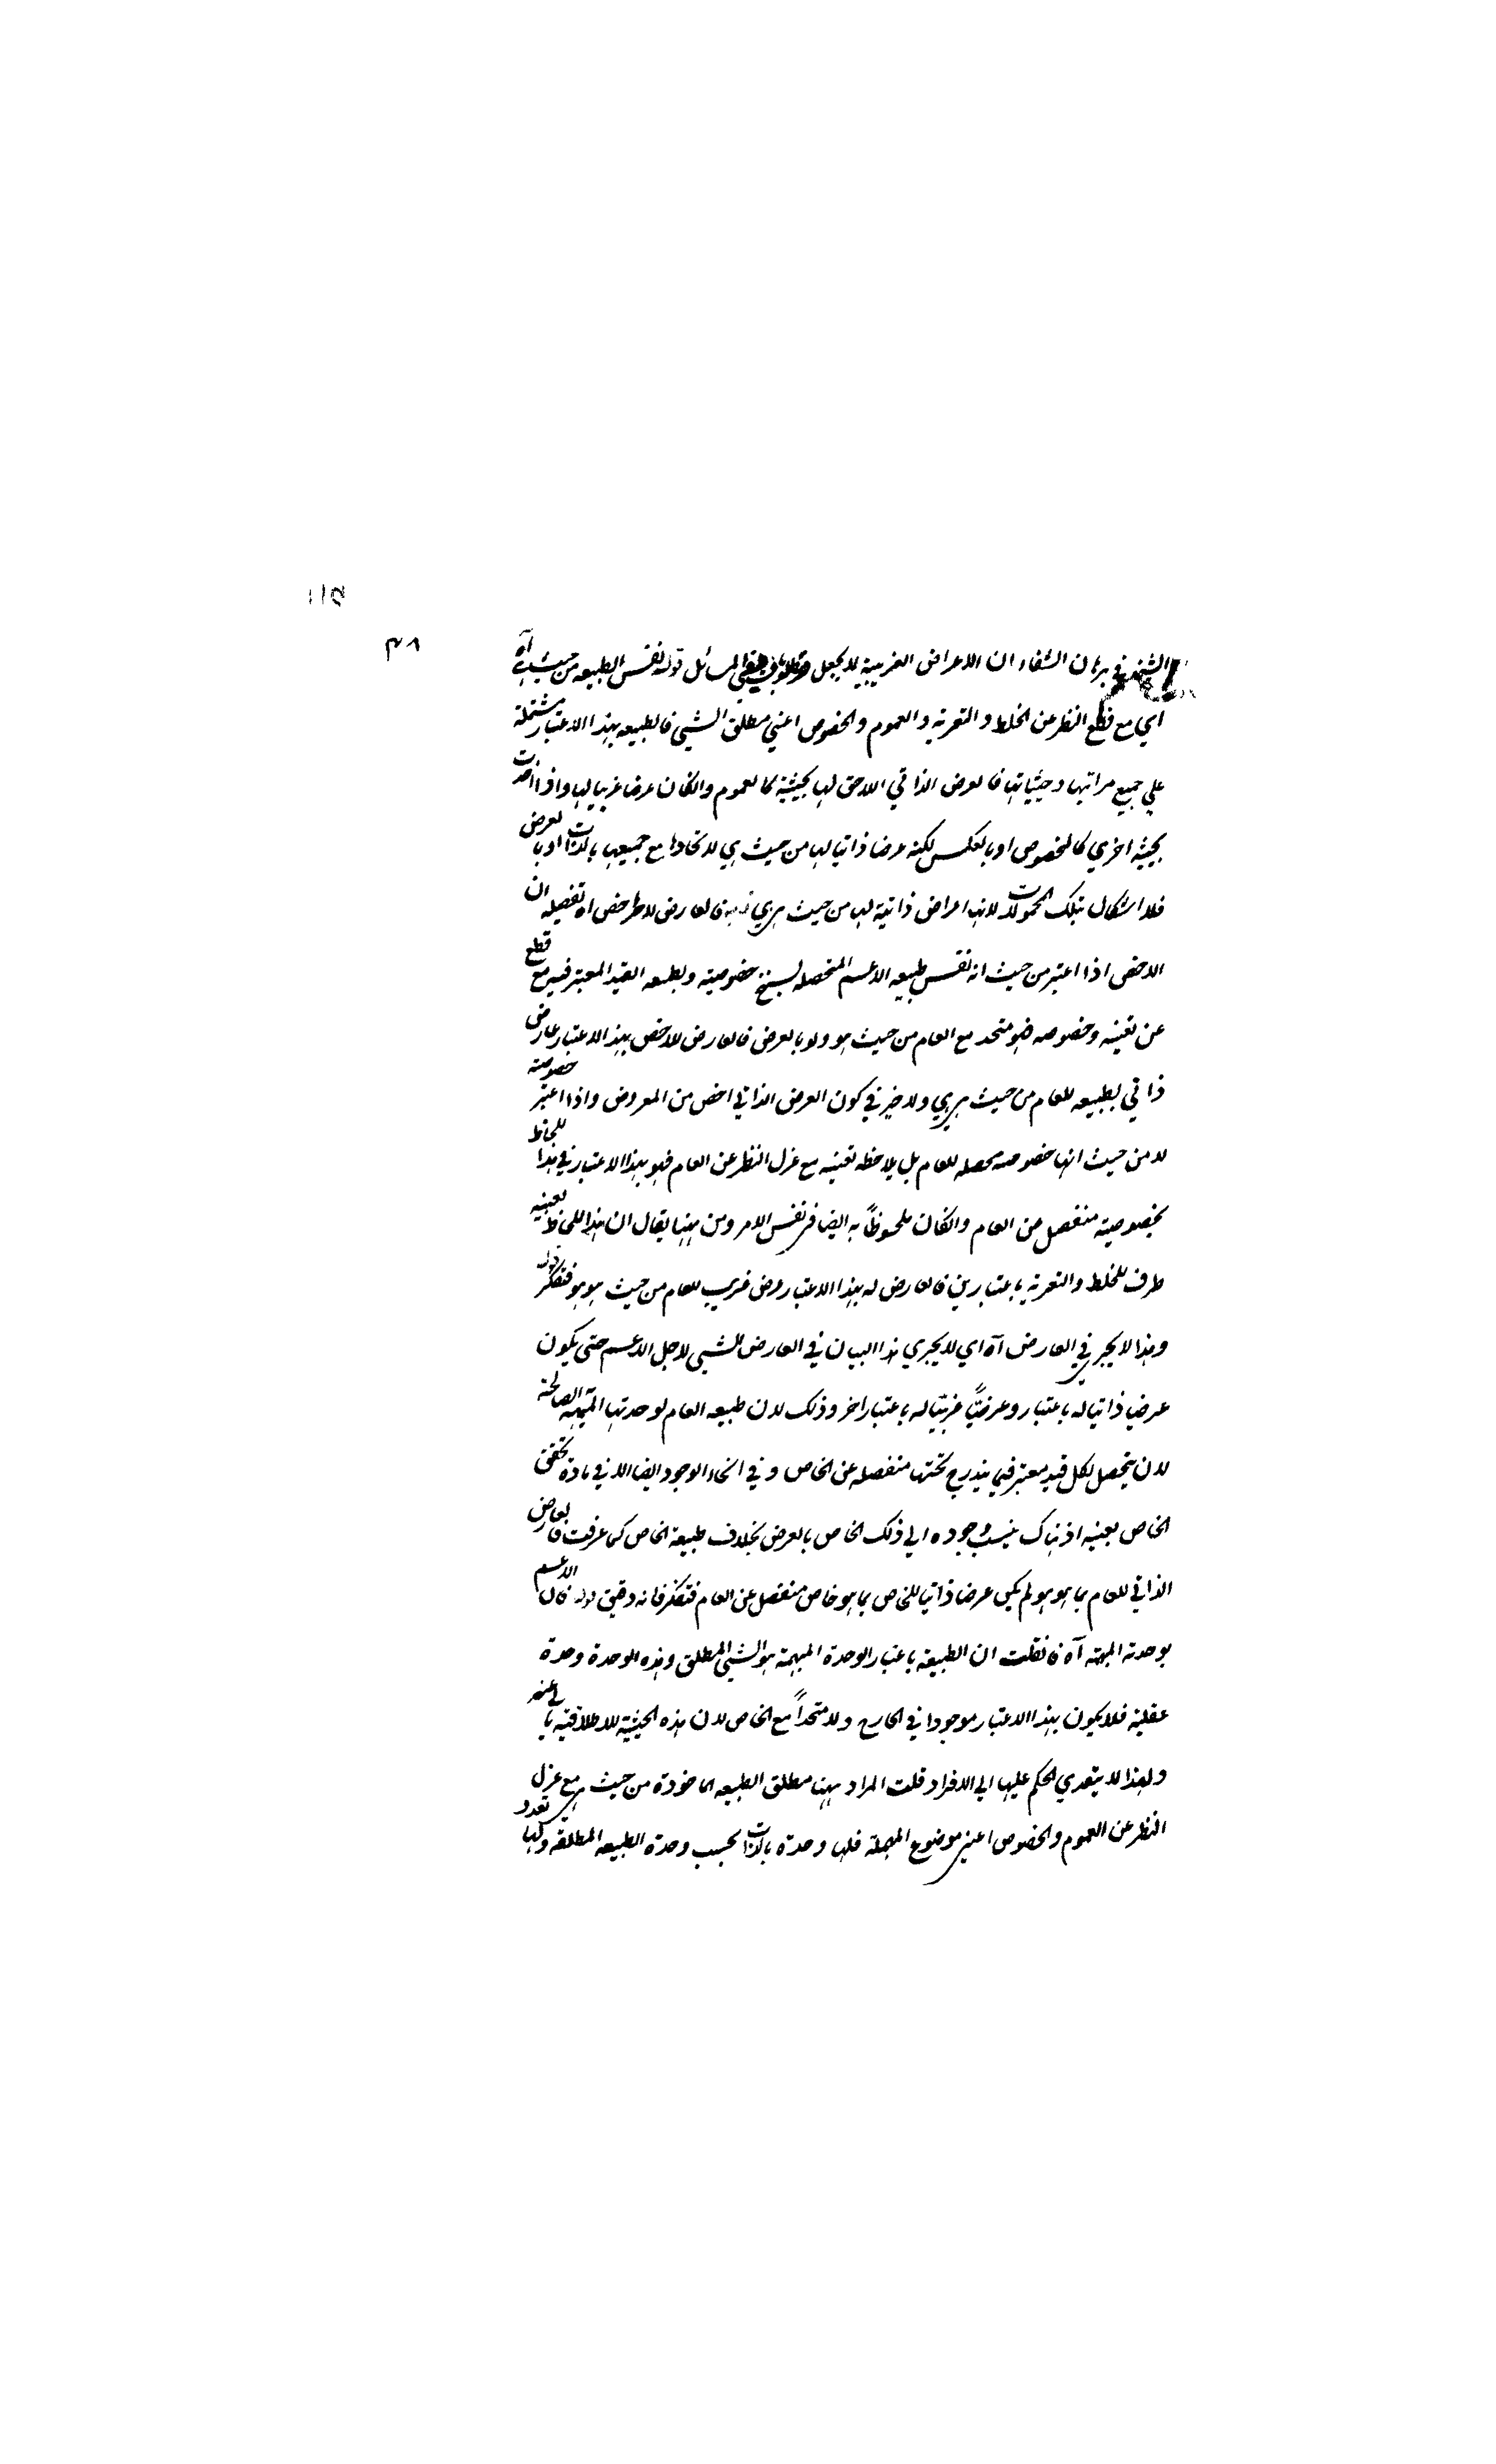 ١١٥
٤٨
الشيخ في برهان الشفاء ان الاعراض الغريبة لا يجعل مطلوبا في المسائل قوله نفس الطبيعه من حيث هي آه
اي مع قطع النظر عن الخلط و التعرية و العموم والخصوص اعني مطلق الشيئ فالطبيعه بهذا الاعتبار مشتملة
علي جميع مراتبها و حيثياتها فالعرض الذاتي اللاحق لها بحيثية كالعموم وان كان عرضا غريبا لها واذا اخذت
بحيثية اخري كالخصوص او بالعكس لكنه عرضا ذاتيا لها من حيث هي لاتحادها مع جميعها بالذات او بالعرض
فلا اشكال بتلك المحمولات لانها اعراض ذاتية لها من حيث هي هي فالعارض للاخص اه تفصيله ان
الاخص اذا اعتبر من حيث انه نفس طبيعه الاعم المتحصله بسنخ خصوصيته وبطبيعه القيد المعتبر فيه مع قطع
عن تعينه وخصوصه فهو متحد مع العام من حيث هو ولو بالعرض فالعارض للاخص بهذا الاعتبار عارض
ذاتي لطبيعه العام من حيث هي هي ولا ضير في كون العرض الذاتي اخص من المعروض واذا اعتبر خصوصيته
لا من حيث انها خصوصه محصله للعام بل بملاحظه تعينه مع عزل النظر عن العام فهو بهذا الاعتبار في هذا اللحاظ
بخصوصيته منفصل عن العام وان كان ملحوظاً به ايضا في نفس الامر ومن ههنا يقال ان هذا اللحاظ بعينه
ظرف للخلط والتعرية باعتبارين فالعارض له بهذا الاعتبار عرض غريب للعام من حيث هو هو فتفكر قوله
وهذا لا يجري في العارض آه اي لا يجري هذا البيان في العارض للشيئ لاجل الاعم حتى يكون
عرضا ذاتيا له باعتبار وعرضاً غريبا له باعتبار اخر وذلك لان طبيعه العام لوحدتها المبهمة الصالحة
لان يتحصل لكل قيد معتبر فيما يندرج تحتها منفصله عن الخاص و في انحاء الوجود ايضا الا في مادة تحقق
الخاص بعينه اذ هناك ينسب وجوده الي ذلك الخاص بالعرض بخلاف طبيعة الخاص كما عرفت فالعارض
الذاتي للعام بما هو هو لم يكن عرضا ذاتيا للخاص بما هو خاص منفصل عن العام فتفكر فانه دقيق قوله فان الاعم
بوحدته المبهمه آه فان قلت ان الطبيعة باعتبار الوحدة المبهمة هو الشيئ المطلق وهذه الوحدة وحدة
عقلية فلا يكون بهذا الاعتبار موجودا في الخارج ولا متحداً مع الخاص لان هذه الحيثية الاطلاقية يابي عنه
ولهذا لا يتعدي الحكم عليها الي الافراد قلت المراد ههنا مطلق الطبيعه الماخوذة من حيث هي مع عزل
النظر عن العموم والخصوص اعني موضوع المهملة فلها وحدة بالذات بحسب وحدة الطبيعه المطلقه ولها تعدد